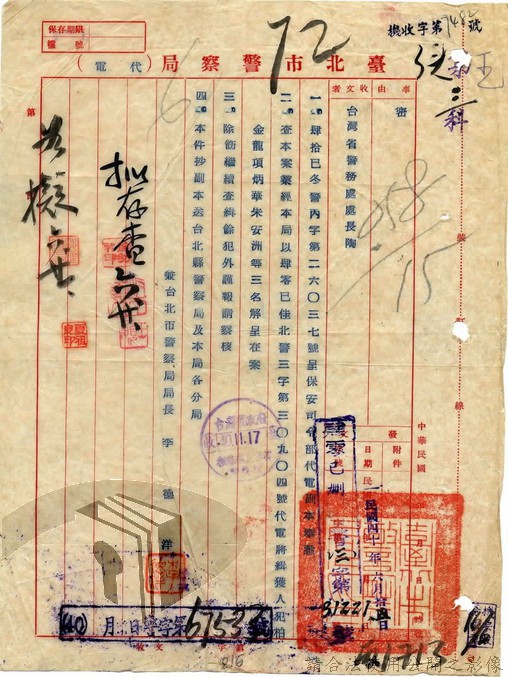 臺北市警察局（代電）
保存期限
檔號
收字第7482號
72
科
事由
收文者
密
台灣省警務處處長陶
一、肆拾巳冬警內字第二六〇三七號呈保安司令部代電副本奉悉
二、查本案業經本局以肆零巳佳北警三字第三〇九〇四號代電將緝獲人犯柏
金龍項炳華朱安洲等三名解呈在案
三、除飭繼續查緝餘犯外謹報請察核
四、本件抄副本送台北縣警察局及本局各分局
兼台北市警察局局長 李德洋
擬存查
如擬
第
號
訂
線
中華民國
發文
附件
日期
民國四十年六月
肆零巳
字第31221號
11.17
(40)月日警字第67537號
61713
請合法使用公開之影像